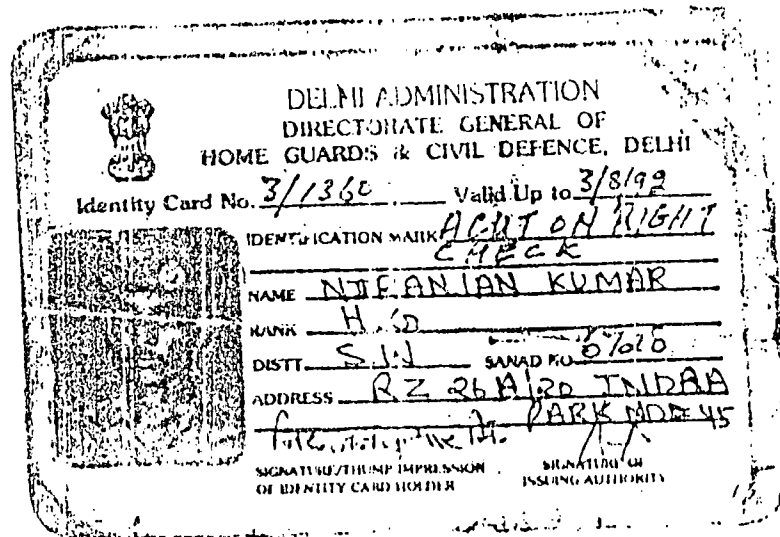 DELHI ADMINISTRATION
DIRECTORATE GENERAL OF
HOME GUARDS & CIVIL DEFENCE, DELHI
Identity Card No. 3/1360 Valid Up to 3/8/99
IDENTIFICATION MARK ON RIGHT
CHECK
NAME KUMAR
RANK
DISTT SANAD NO
ADDRESS RZ 26A/20 INDRA
PARK NDE 45
SIGNATURE/THUMP IMPRESSION SIGNATURE OF
OF IDENTITY CARD HOLDER ISSUING AUTHORITY